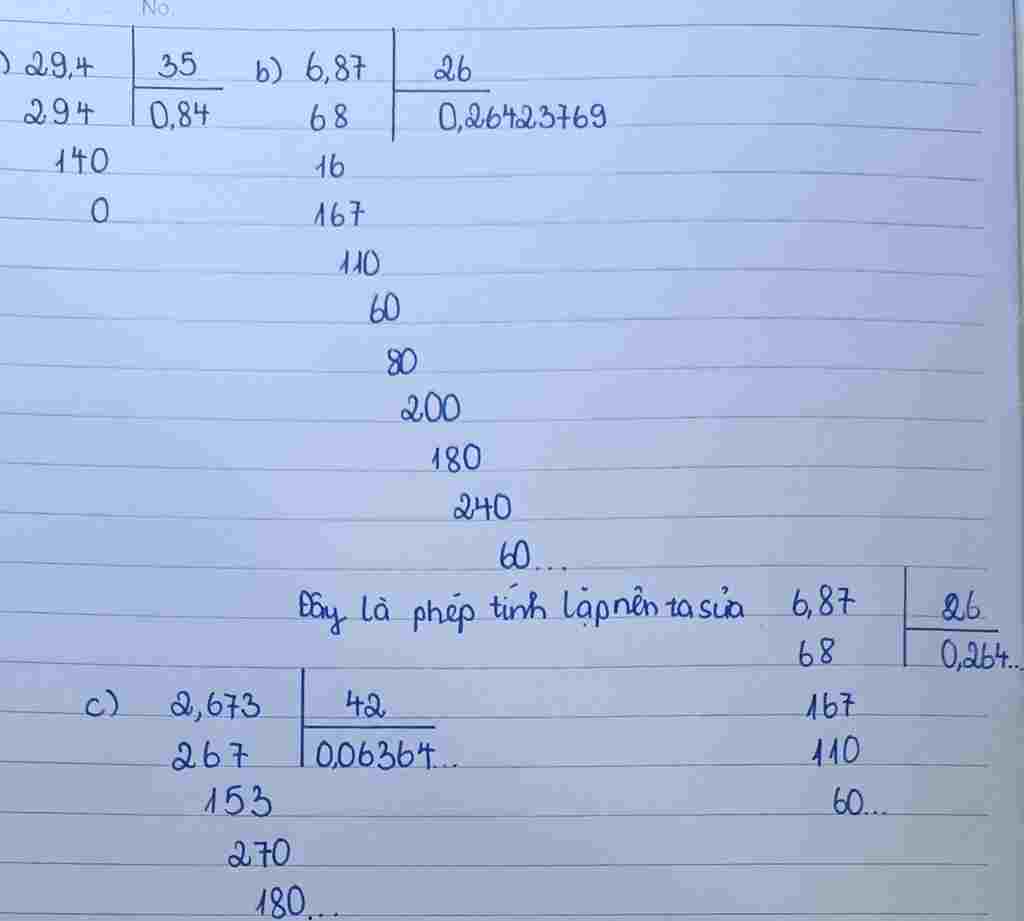 No.
) 29,4 35 b) 6,87 26
294 0,84 68 0,26423769
140 16
0 167
110
60
80
200
180
240
60...
Đây là phép tính lặp nên ta sửa 6,87 26
68 0,264...
c) 2,673 42 167
267 0,06364... 110
153 60...
270
180...